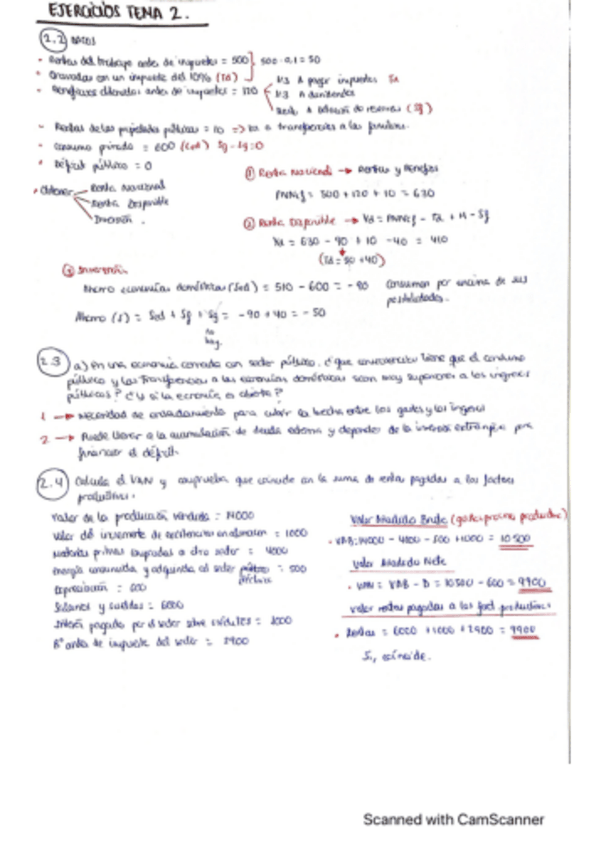 EJERCICIOS TEMA 2.
2.2 DATOS
• Rentas del trabajo antes de impuestos = 500 } 500 · 0,1 = 50
• Gravadas con un impuesto del 10% (Td)
• Beneficios obtenidos antes de impuestos = 120
1/3 A pagar impuestos Ta
1/3 A dividendos
Resto A dotación de reservas (Sg)
- Rentas de las propiedades públicas = 10 => va a transferencias a las familias.
- Consumo privado = 600 Sg - Ig = 0
• Déficit público = 0
• Obtener
Renta Nacional
Renta Disponible
Inversión.
① Renta Nacional → Rentas y Benefos
PNNcf = 500 + 120 + 10 = 630
② Renta Disponible → Yd = PNNcf - Td + TR - Sg
Yd = 630 - 90 + 10 - 40 = 510
(Td = 50 + 40)
③ Inversión
Ahorro economías domésticas (Sed) = 510 - 600 = - 90
Consumen por encima de sus
posibilidades.
Ahorro (S) = Sed + Sg + Sg = - 90 + 40 = - 50
no
hay.
2.3 a) En una economía cerrada con sector público, ¿que consecuencias tiene que el consumo
público y las Transferencias a las economías domésticas sean muy superiores a los ingresos
públicos? ¿Y si la economía es abierta?
1 → Necesidad de endeudamiento para cubrir la brecha entre los gastos y los ingresos
2 → Puede llevar a la acumulación de deuda externa y depender de la inversión extranjera para
financiar el déficit.
2.4 Calcula el VAN y comprueba que coincide con la suma de rentas pagadas a los factores
productivos.
Valor de la producción vendida = 14000
Valor del incremento de existencias en almacen = 1000
Materias primas compradas a otro sector = 4000
Energía consumida y adquirida al sector = 500
Depreciación = 600
Salarios y sueldos = 6000
Interés pagados por el sector sobre créditos = 1000
Bº antes de impuesto del sector = 2900
Valor Añadido Bruto
• VAB = 14000 - 4000 - 500 + 1000 = 10500
Valor Añadido Neto
• VAN = VAB - D = 10500 - 600 = 9900
Valor rentas pagadas a los fact productivos
• Rentas = 6000 + 1000 + 2900 = 9900
Si, coincide.
Scanned with CamScanner